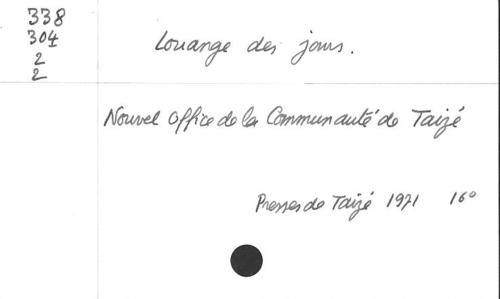 338
304
2
2
Louange des jours.
Nouvel Office de la Communauté de Taizé
Presses de Taizé 1971 16°